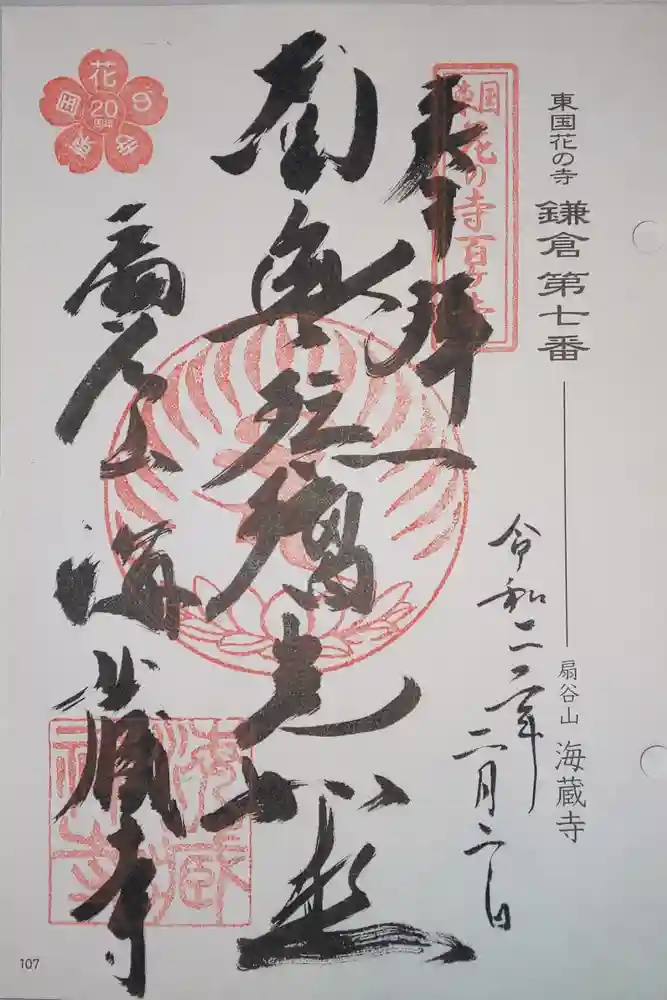 東国花の寺 鎌倉第七番 扇谷山 海蔵寺
令和
二月二日
奉拝
東国花の寺百ヶ寺
南無瑠璃光如来
扇谷山 海蔵寺
花
20
周年
海蔵禅寺
107